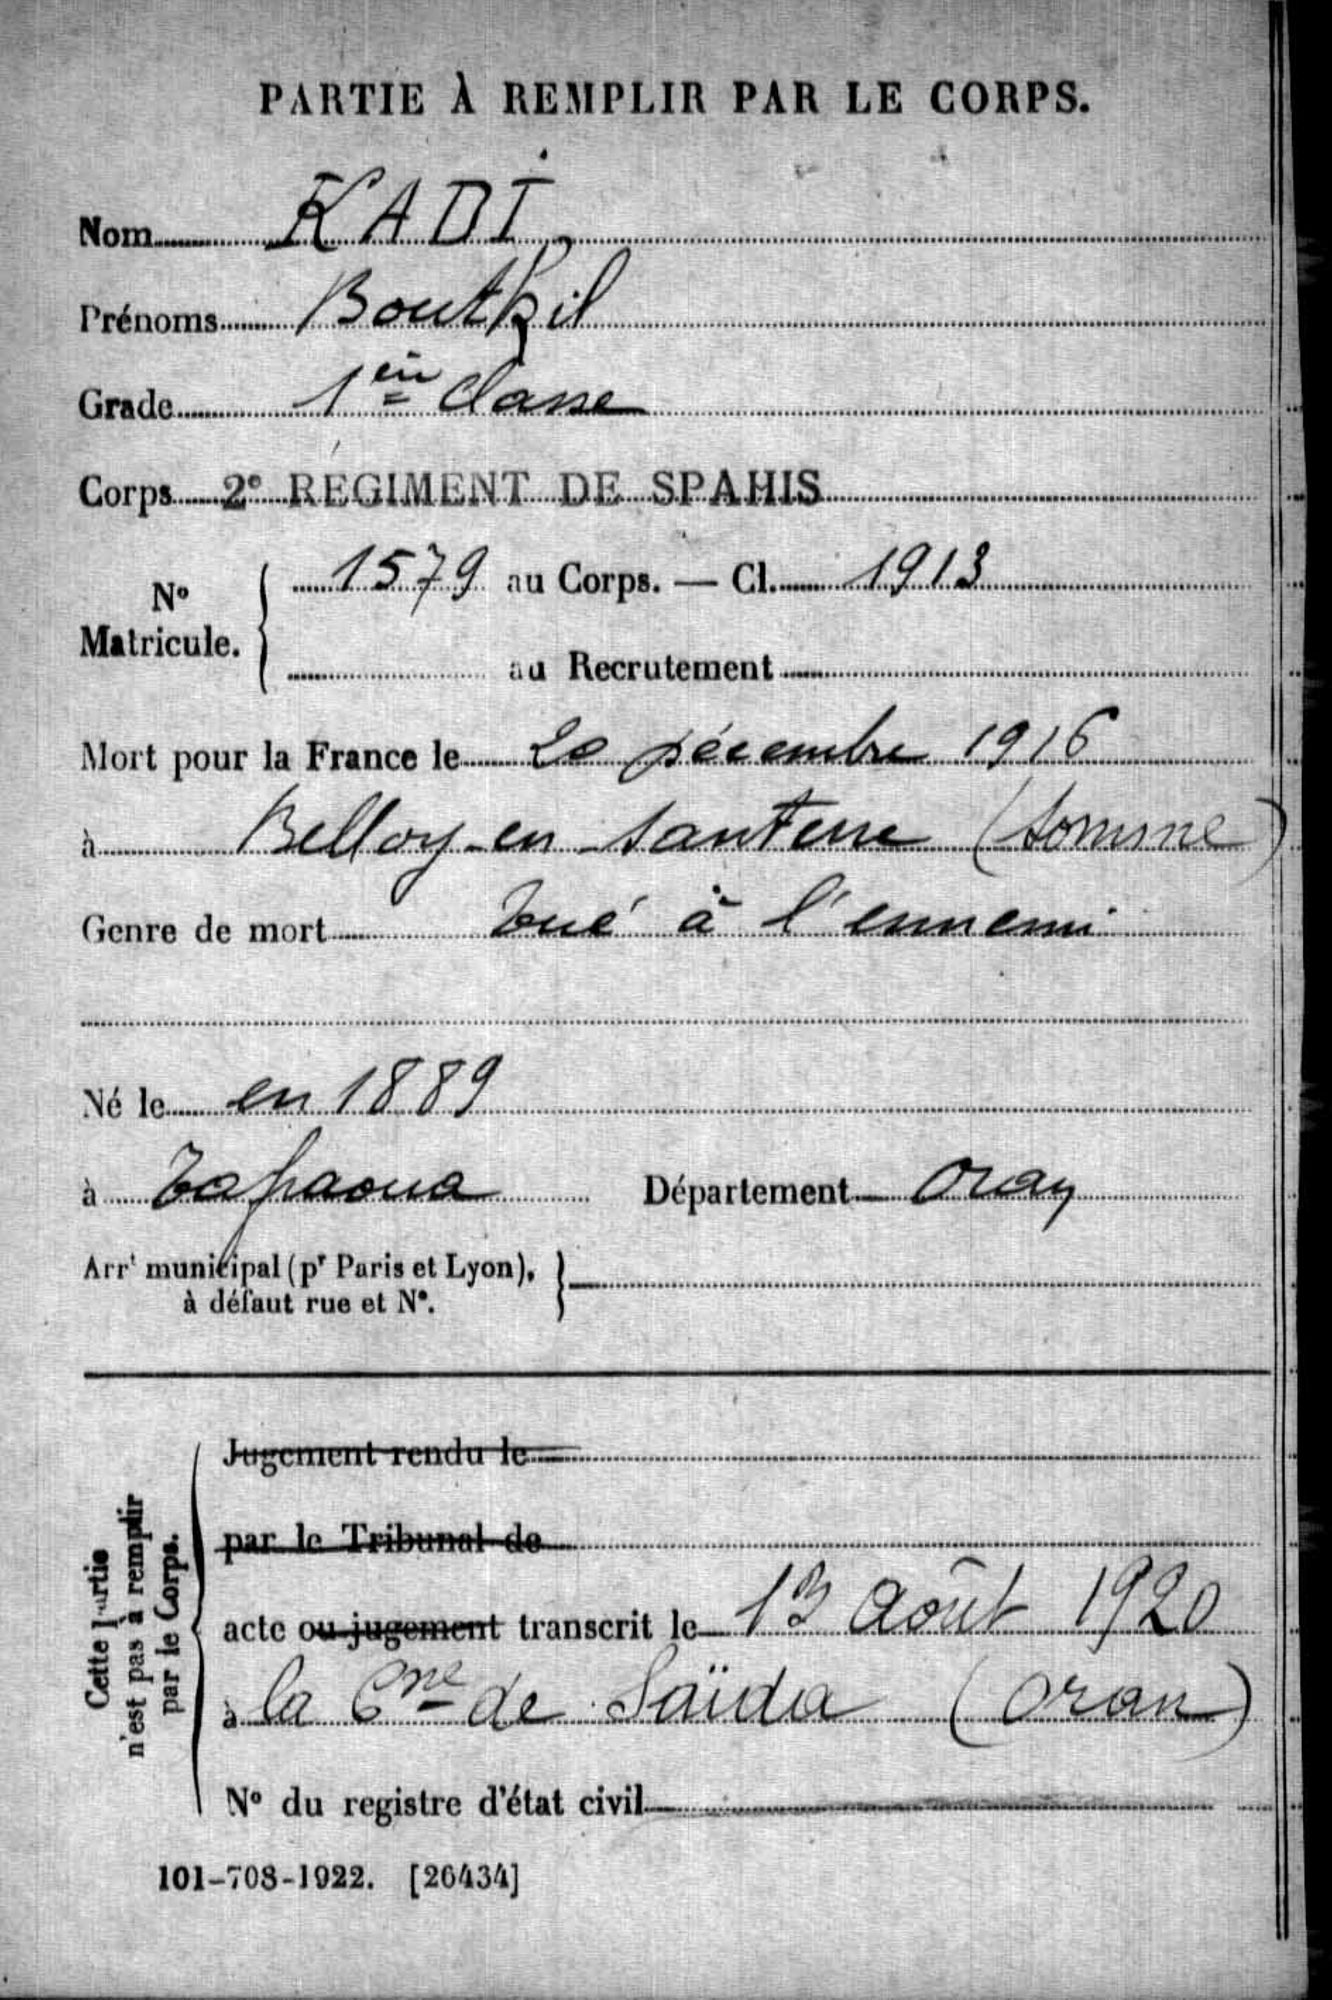 PARTIE À REMPLIR PAR LE CORPS.
Nom KADI
Prénoms Boutkil
Grade 1ère Classe
Corps 2e RÉGIMENT DE SPAHIS
No Matricule. 1579 au Corps. — Cl. 1913
au Recrutement
Mort pour la France le 20 décembre 1916
à Belloy-en-Santerre (Somme)
Genre de mort Tué à l'ennemi
Né le en 1889
à Tafraoua Département Oran
Arrt municipal (pr Paris et Lyon),
à défaut rue et No.
Cette partie
n'est pas à remplir
par le Corps.
Jugement rendu le
par le Tribunal de
acte ou jugement transcrit le 13 Août 1920
à la Cne de Saïda (Oran)
No du registre d'état civil
101-708-1922. [26434]